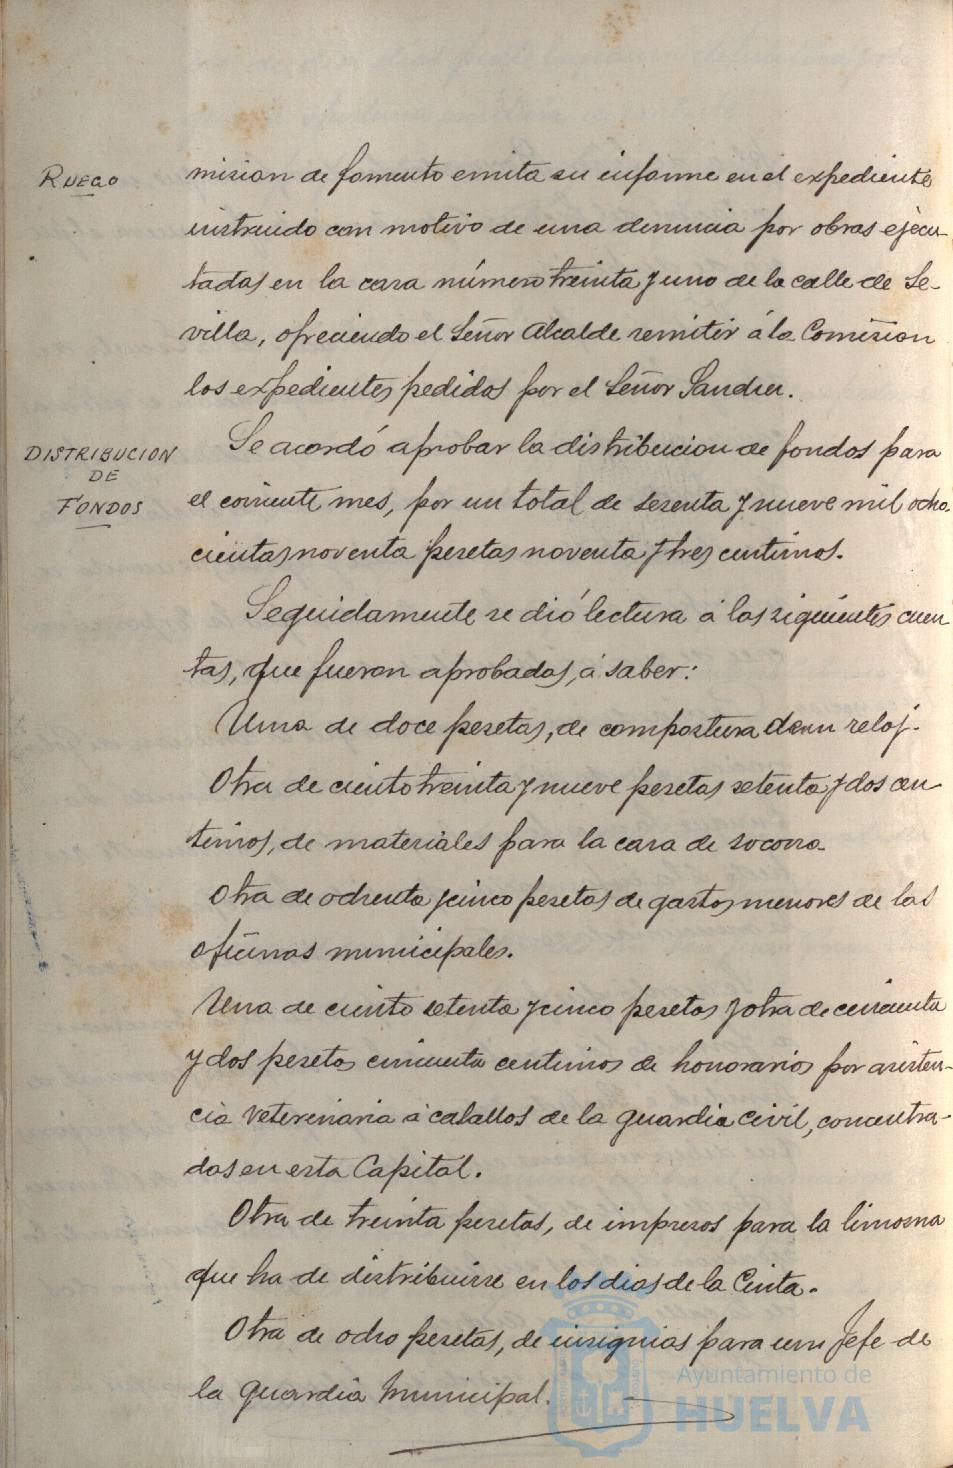 RUEGO
mision de fomento emita su informe en el expediente
instruido con motivo de una denuncia por obras ejecu-
tadas en la casa número treinta y uno de la calle de Se-
villa, ofreciendo el Señor Alcalde remitir á la Comision
los expedientes pedidos por el Señor
DISTRIBUCION
DE
FONDOS
Se acordó aprobar la distribucion de fondos para
el corriente mes, por un total de sesenta y nueve mil ocho-
cientas noventa pesetas noventa y tres centimos.
Seguidamente se dió lectura á las siguientes cuen
tas, que fueron aprobadas, á saber:
Una de doce pesetas, de compostura de un reloj.
Otra de ciento treinta y nueve pesetas setenta y dos cen-
timos, de materiales para la casa de socorro.
Otra de ochenta y cinco pesetas de gastos menores de las
oficinas municipales.
Una de ciento setenta y cinco pesetas y otra de cincuenta
y dos pesetas cincuenta centimos de honorarios por asisten-
cia veterinaria á caballos de la guardia civil, concentra-
dos en esta Capital.
Otra de treinta pesetas, de impresos para la limosna
que ha de distribuirse en los dias de la Cinta.
Otra de ocho pesetas, de insignias para un Jefe de
la guardia Municipal.
Ayuntamiento de
HUELVA